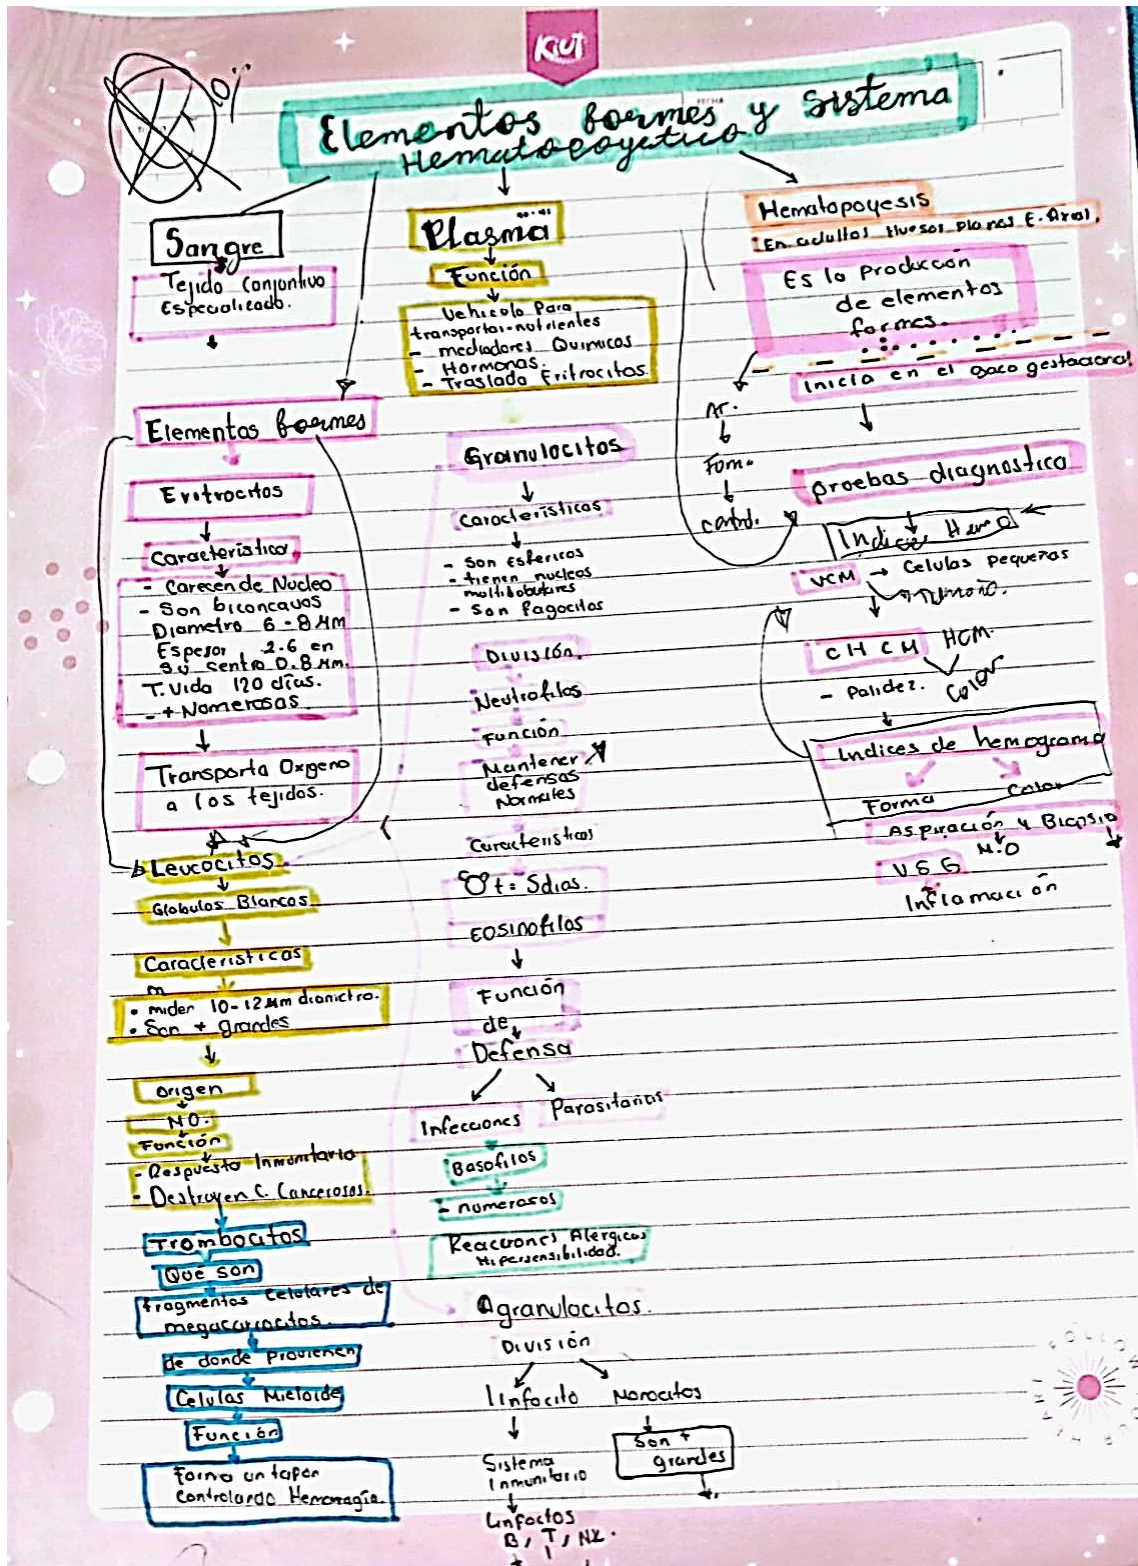 KIUT
10
Elementos formes y Sistema
Hematopoyetico
Sangre
Tejido Conjuntivo
Especializado.
Elementos formes
Eritrocitos
Característica
- Carecen de Nucleo
- Son biconcavos
Diametro 6-8 Mm
Espesor 2.6 en
su centro 0.8 Mm.
T. Vida 120 días.
- + Numerosas.
Transporta Oxigeno
a los tejidos.
Leucocitos
Globulos Blancos
Caracteristicas
• miden 10-12 Mm diametro.
• Son + grandes
origen
MO.
Función
- Respuesta Inmunitaria
- Destruyen C. Cancerosas.
Trombocitos
Qué son
fragmentos Celulares de
megacariocitos.
de donde Provienen
Celulas Mieloide
Función
Forma un tapon
Controlando Hemorragia.
Plasma
Función
Vehiculo Para
transportar-nutrientes
- mediadores Químicos
- Hormonas.
- Traslada Eritrocitos.
Granulocitos
Características
- Son Esfericos
- tienen nucleos
multilobulares
- Son fagocitos
División
Neutrofilos
Función
Mantener
defensas
Normales
Caracteristicas
t: 5dias.
EOSINOFILOS
Función
de
Defensa
Infecciones Parasitarias
Basofilos
- numerosos
Reacciones Alergicas
Hipersensibilidad.
Agranulocitos.
División
Linfocito Monocitos
Sistema
Inmunitario
Linfocitos
B, T, NK.
Son +
grandes
Hematopoyesis
En adultos Huesos planos E. Axial.
Es la Producción
de elementos
formes.
Inicia en el saco gestacional
Ar.
Forma
control.
Pruebas diagnostico
Indice Hema
VCM → Celulas pequeñas
Tamaño.
CHCM HCM.
- Palidez. Color
Indices de hemograma
Forma Color
Aspiración y Biopsia
M.O
VSG
Inflamación